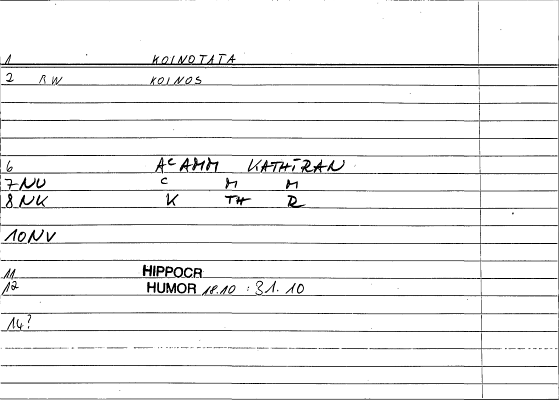 1 KOINOTATA
2 RW KOINOS
6 AᶜAMM KATHIRAN
7 NU C M M
8 NK K TH R
10 NV
11 HIPPOCR
12 HUMOR 18.10 : 31.10
14?